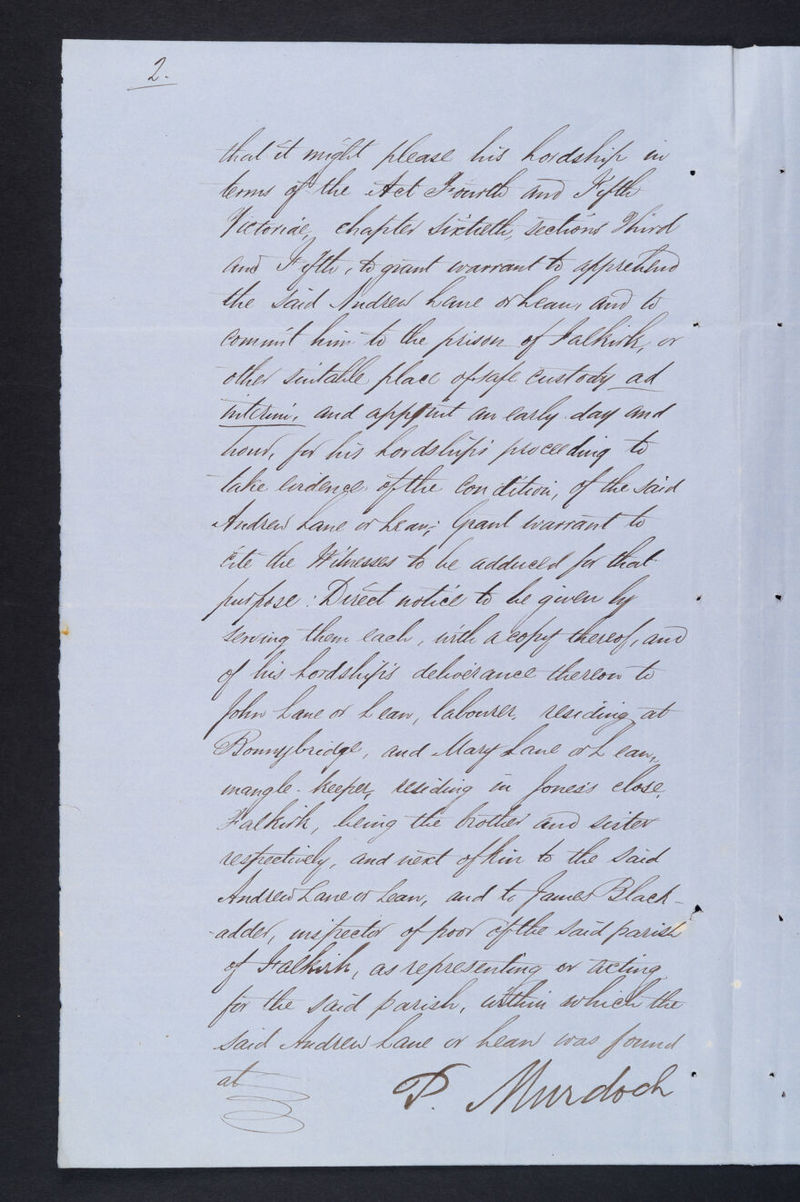 2.
that it might please his Lordship in
terms of the Act Fourth and Fifth
Victoriae, chapter sixtieth, sections Third
and Fifth, to grant warrant to apprehend
the said Andrew Lane or Lean, and to
commit him to the prison of Falkirk, or
other suitable place of safe custody ad
interim, and appoint an early day and
hour, for his Lordship's proceeding to
take evidence of the condition, of the said
Andrew Lane or Lean; Grant warrant to
cite the Witnesses to be adduced for that
purpose: Direct notice to be given by
serving them each, with a copy thereof, and
of his Lordship's deliverance thereon to
John Lane or Lean, labourer, residing at
Bonnybridge, and Mary Lane or Lean,
mangle-keeper, residing in Jones's close,
Falkirk, being the brother and sister
respectively, and next of kin to the said
Andrew Lane or Lean, and to James Black-
adder, inspector of poor of the said parish
of Falkirk, as representing or acting
for the said parish, within which the
said Andrew Lane or Lean was found
at
P. Murdoch